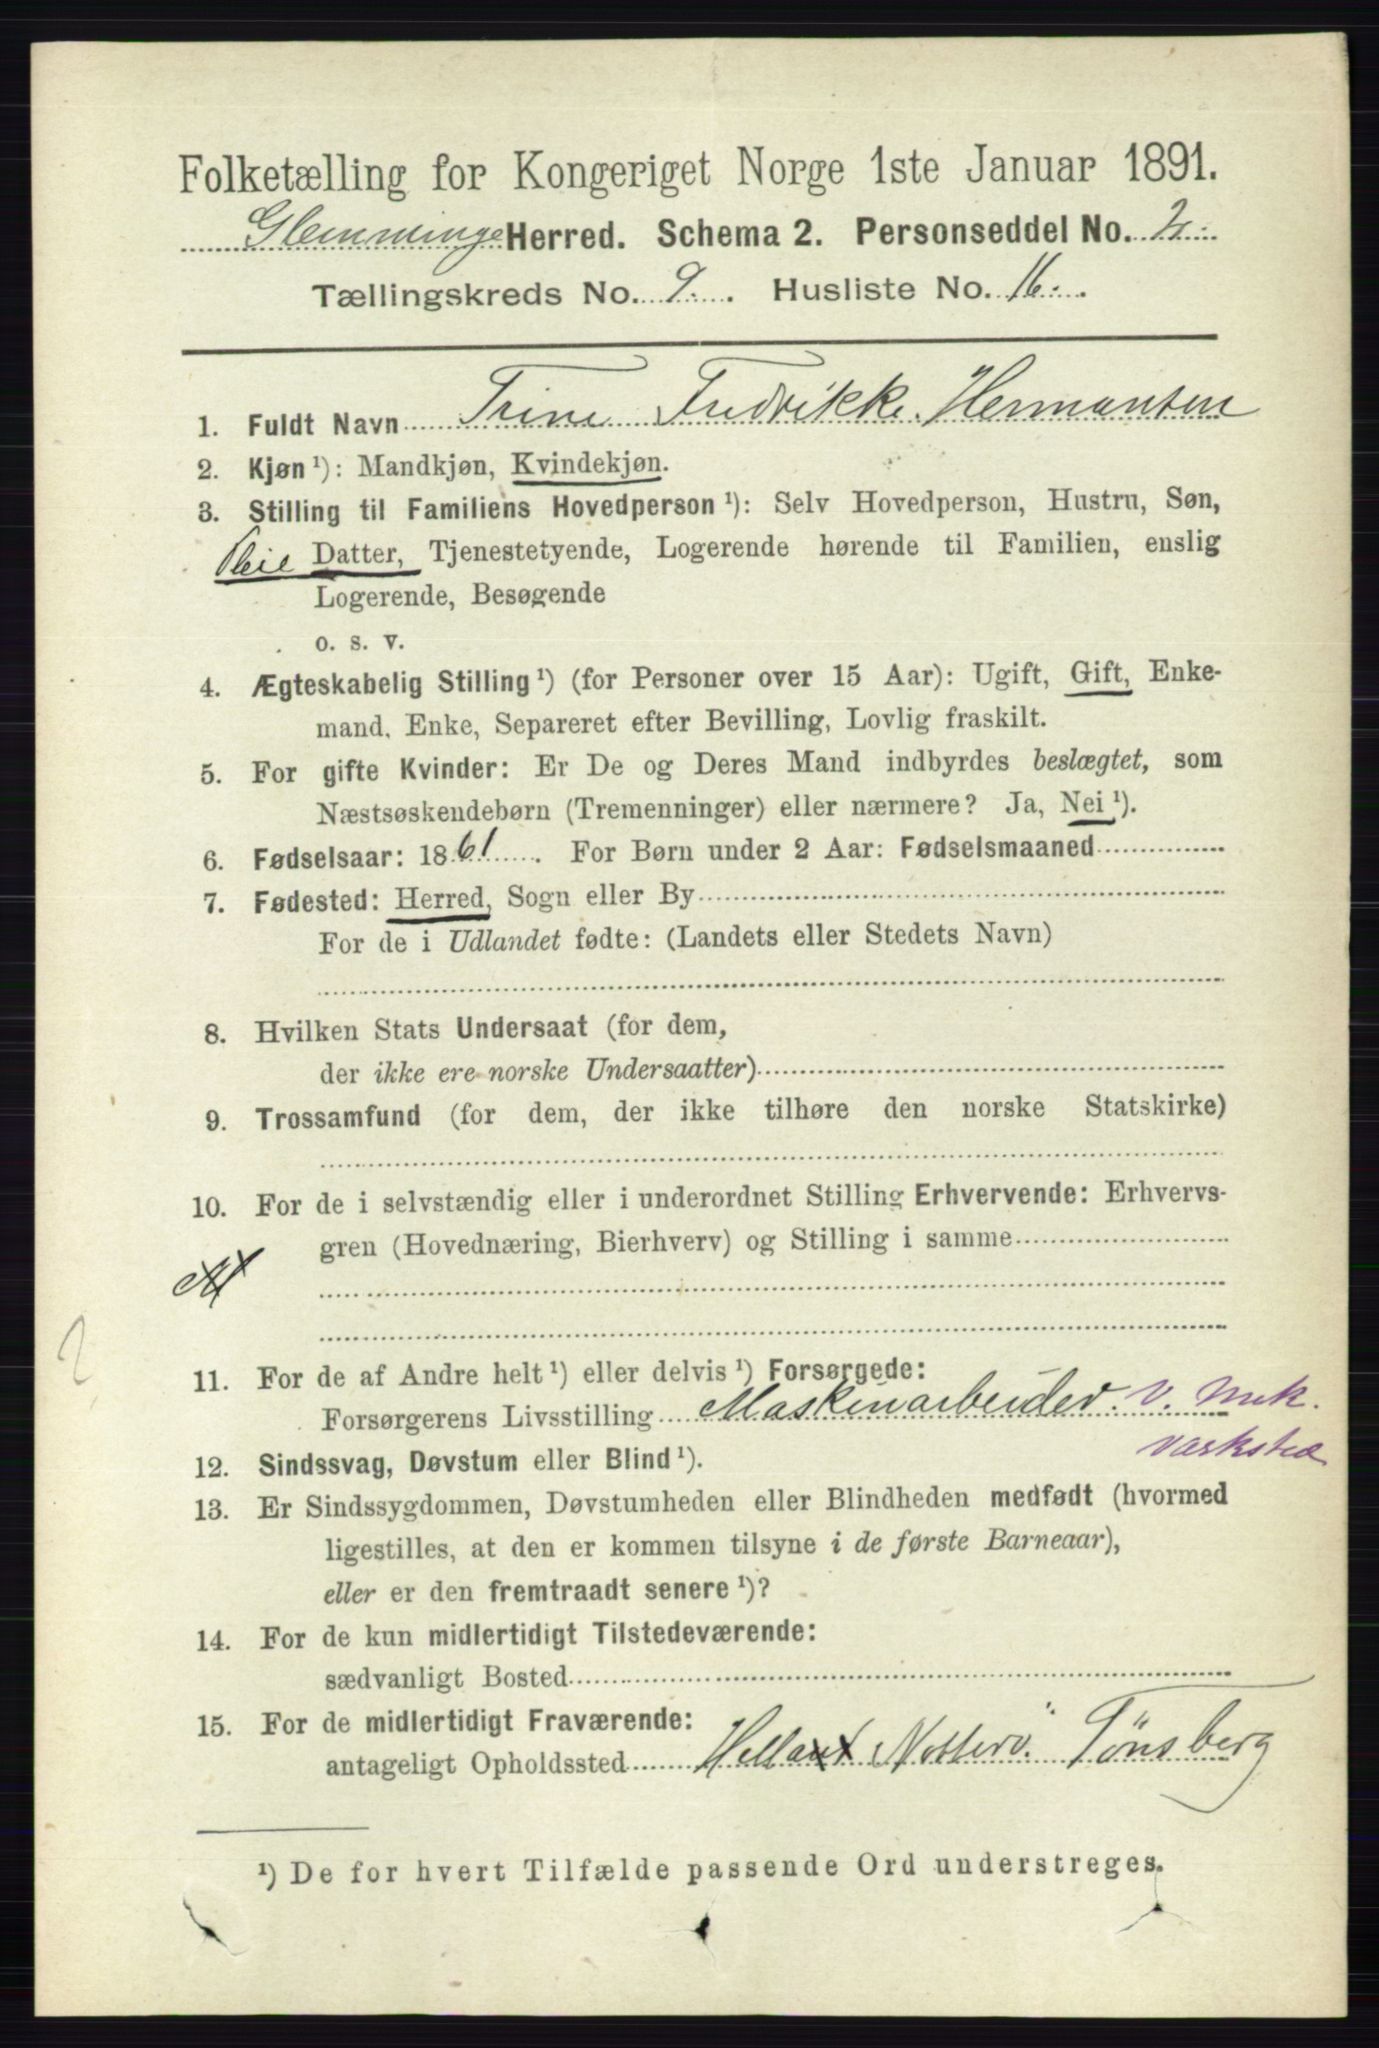 Folketælling for Kongeriget Norge 1ste Januar 1891.
Glemminge Herred. Schema 2. Personseddel No. 2.
Tællingskreds No. 9. Husliste No. 16.
1. Fuldt Navn Trine Fredrikke Hermansen
2. Kjøn ¹): Mandkjøn, Kvindekjøn.
3. Stilling til Familiens Hovedperson ¹): Selv Hovedperson, Hustru, Søn,
Pleie Datter, Tjenestetyende, Logerende hørende til Familien, enslig
Logerende, Besøgende
o. s. v.
4. Ægteskabelig Stilling ¹) (for Personer over 15 Aar): Ugift, Gift, Enke-
mand, Enke, Separeret efter Bevilling, Lovlig fraskilt.
5. For gifte Kvinder: Er De og Deres Mand indbyrdes beslægtet, som
Næstsøskendebørn (Tremenninger) eller nærmere? Ja, Nei ¹).
6. Fødselsaar: 1861. For Børn under 2 Aar: Fødselsmaaned
7. Fødested: Herred, Sogn eller By
For de i Udlandet fødte: (Landets eller Stedets Navn)
8. Hvilken Stats Undersaat (for dem,
der ikke ere norske Undersaatter)
9. Trossamfund (for dem, der ikke tilhøre den norske Statskirke)
10. For de i selvstændig eller i underordnet Stilling Erhvervende: Erhvervs-
gren (Hovednæring, Bierhverv) og Stilling i samme
2
11. For de af Andre helt ¹) eller delvis ¹) Forsørgede:
Forsørgerens Livsstilling Maskinarbeider. v. mek.
værksted
12. Sindssvag, Døvstum eller Blind ¹).
13. Er Sindssygdommen, Døvstumheden eller Blindheden medfødt (hvormed
ligestilles, at den er kommen tilsyne i de første Barneaar),
eller er den fremtraadt senere ¹)?
14. For de kun midlertidigt Tilstedeværende:
sædvanligt Bosted
15. For de midlertidigt Fraværende:
antageligt Opholdssted Nøtterö Tönsberg
¹) De for hvert Tilfælde passende Ord understreges.